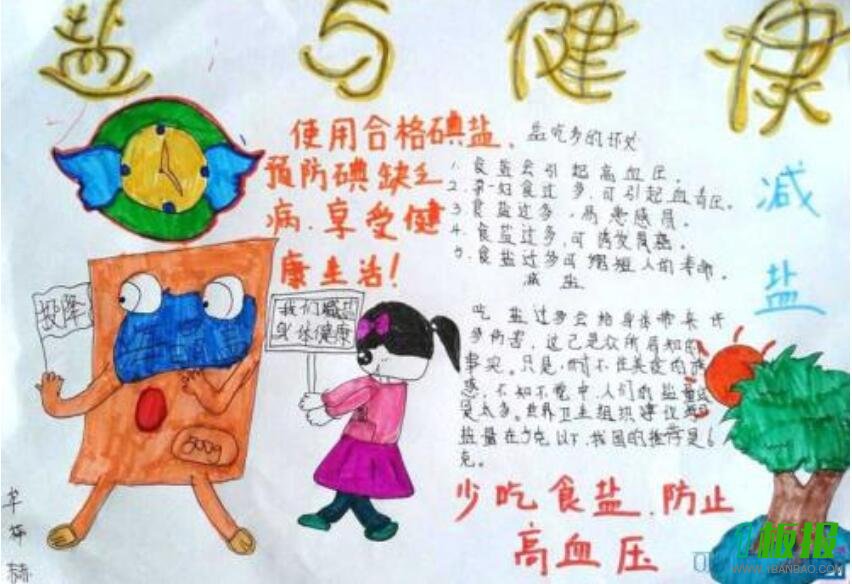 盐与健康
使用合格碘盐、
预防碘缺乏
病、享受健
康生活！
盐吃多的坏处
1. 食盐会引起高血压。
2. 孕妇食过多,可引起血高压。
3. 食盐过多,易患感冒。
4. 食盐过多,可诱发胃癌。
5. 食盐过多可缩短人的寿命。
减盐
吃盐过多会给身体带来许
多伤害,这已是众所周知的
事实。只是,时不住美食的诱
惑,不知不觉中,人们的盐量
是太多。世界卫生组织建议每日
盐量在5克以下,我国的推荐是6
克。
减
盐
投降
我们减盐
身体健康
500g
少吃食盐、防止
高血压
板报
WWW.1BANBAO.COM